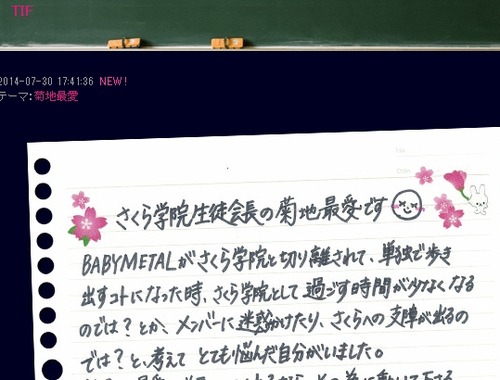 TIF
2014-07-30 17:41:36 NEW!
テーマ:菊地最愛
さくら学院生徒会長の菊地最愛です
BABYMETALがさくら学院と切り離されて、単独で歩き
出すコトになった時、さくら学院として過ごす時間が少なくなる
のでは?とか、メンバーに迷惑かけたり、さくらへの支障が出るの
では?と、考えて とても悩んだ自分がいました。